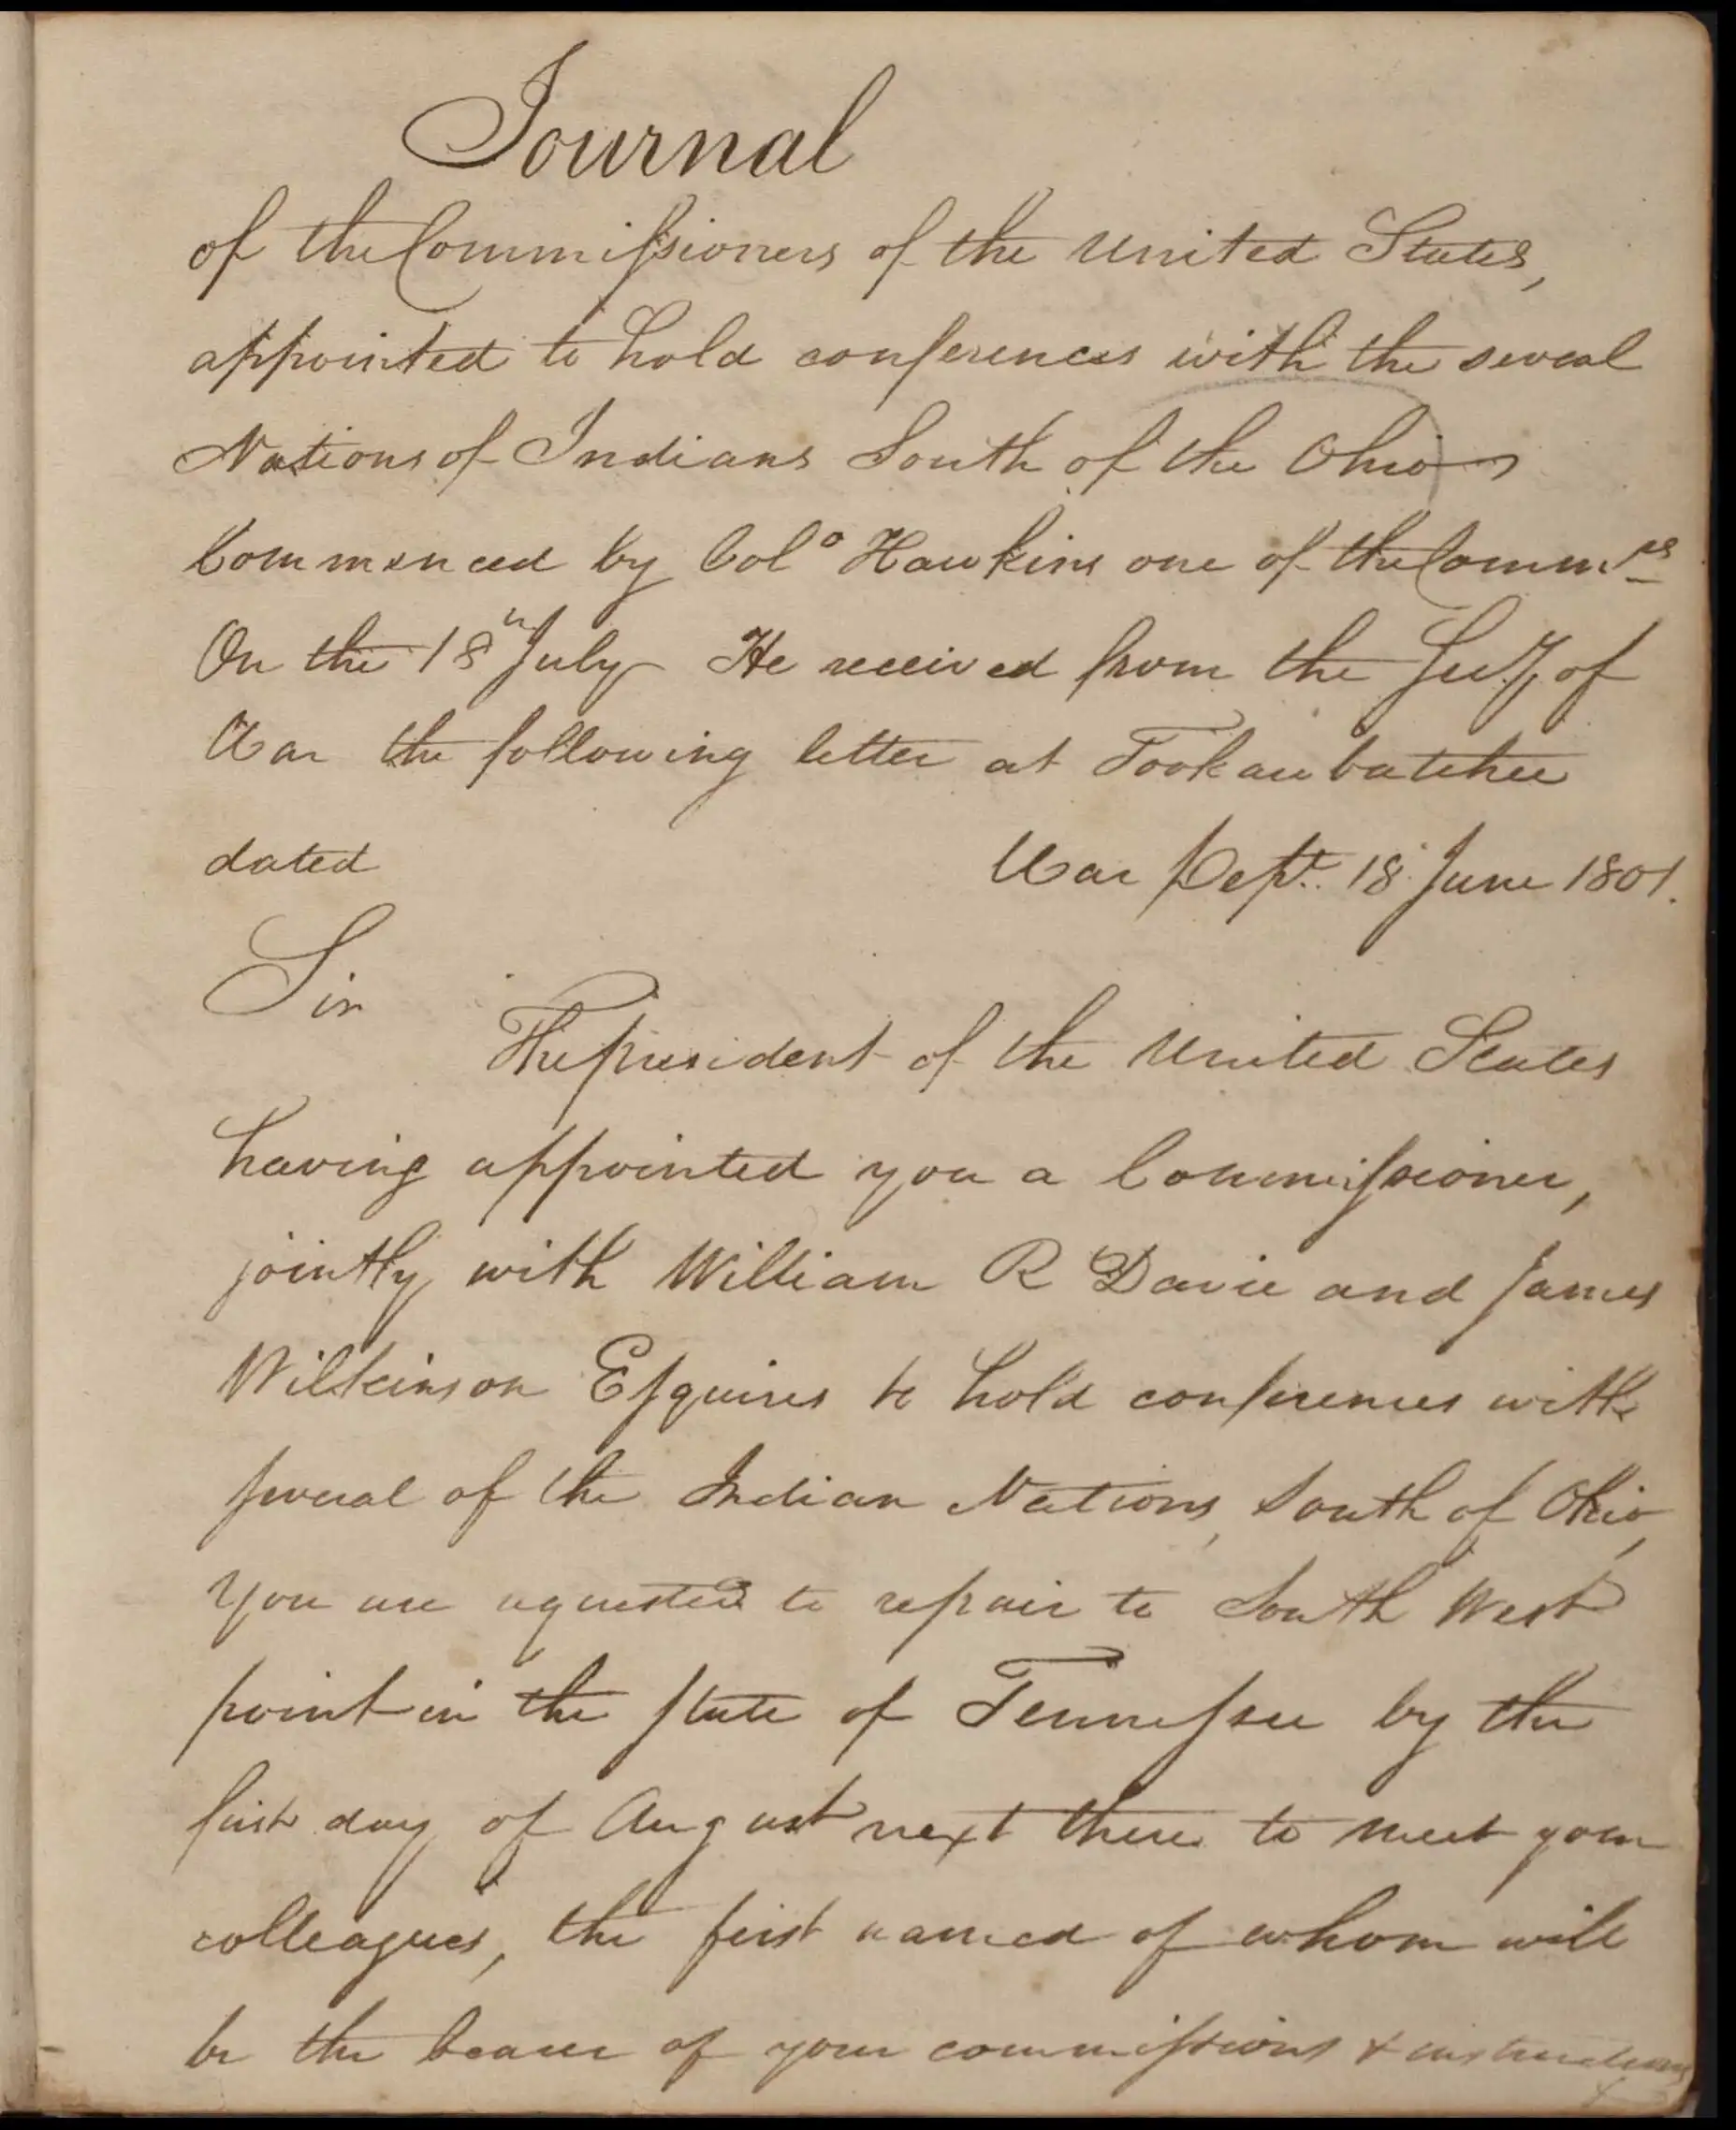 Journal
of the Commissioners of the United States,
appointed to hold conferences with the several
Nations of Indians South of the Ohio
Commenced by Colo Hawkins one of the Commrs
On the 18th July He received from the Secy of
War the following letter at Tookaubatchee
dated War Dept. 18 June 1801.
Sir
The president of the United States
having appointed you a Commissioner,
jointly with William R Davie and James
Wilkinson Esquires to hold conferences with
several of the Indian Nations, South of Ohio,
you are requested to repair to South West
point in the state of Tennessee by the
first day of August next there to meet your
colleagues, the first named of whom will
be the bearer of your commissions & instructions